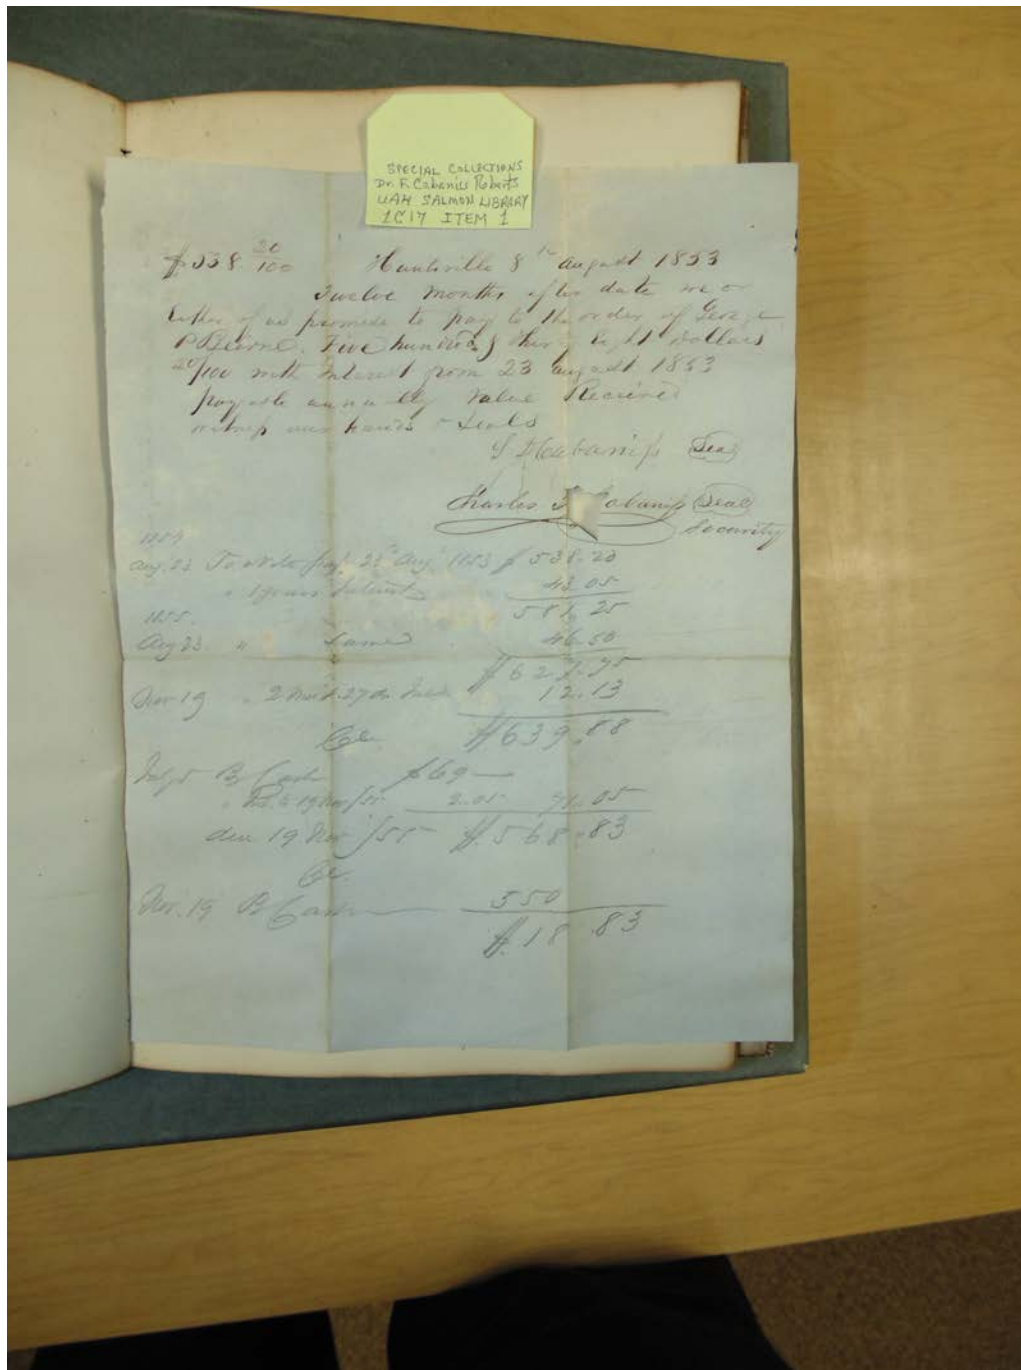 SPECIAL COLLECTIONS
Dr. F. Cabaniss Roberts
UAH SALMON LIBRARY
1C17 ITEM 1
$538. 20/100 Huntsville 8th August 1853
Twelve months after date we or
Either of us promise to pay to the order of George
P Beirne. Five hundred thirty Eight dollars
20/100 with interest from 23 August 1853
payable annually Value Received
witness our hands & Seals
S D Cabaniss Seal
Charles Cabaniss Seal
Security
1854
Aug. 23 To Note 23d Aug 1853 $538.20
" 1 years Interest 43.05
581.25
1855.
Aug 23. " Same 46.50
$627.75
Nov 19. " 2 27 12.13
Cr. $639.88
July 5 By Cash $69—
" 19 Nov /55 2.05 71.05
due 19 Nov /55 $568.83
Cr.
Nov. 19 By Cash 550
$.18.83